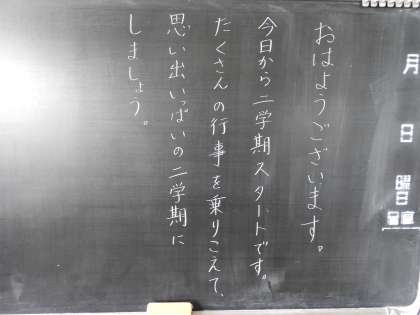 月
日
曜日
おはようございます。
今日から二学期スタートです。
たくさんの行事を乗りこえて、
思い出いっぱいの二学期に
しましょう。